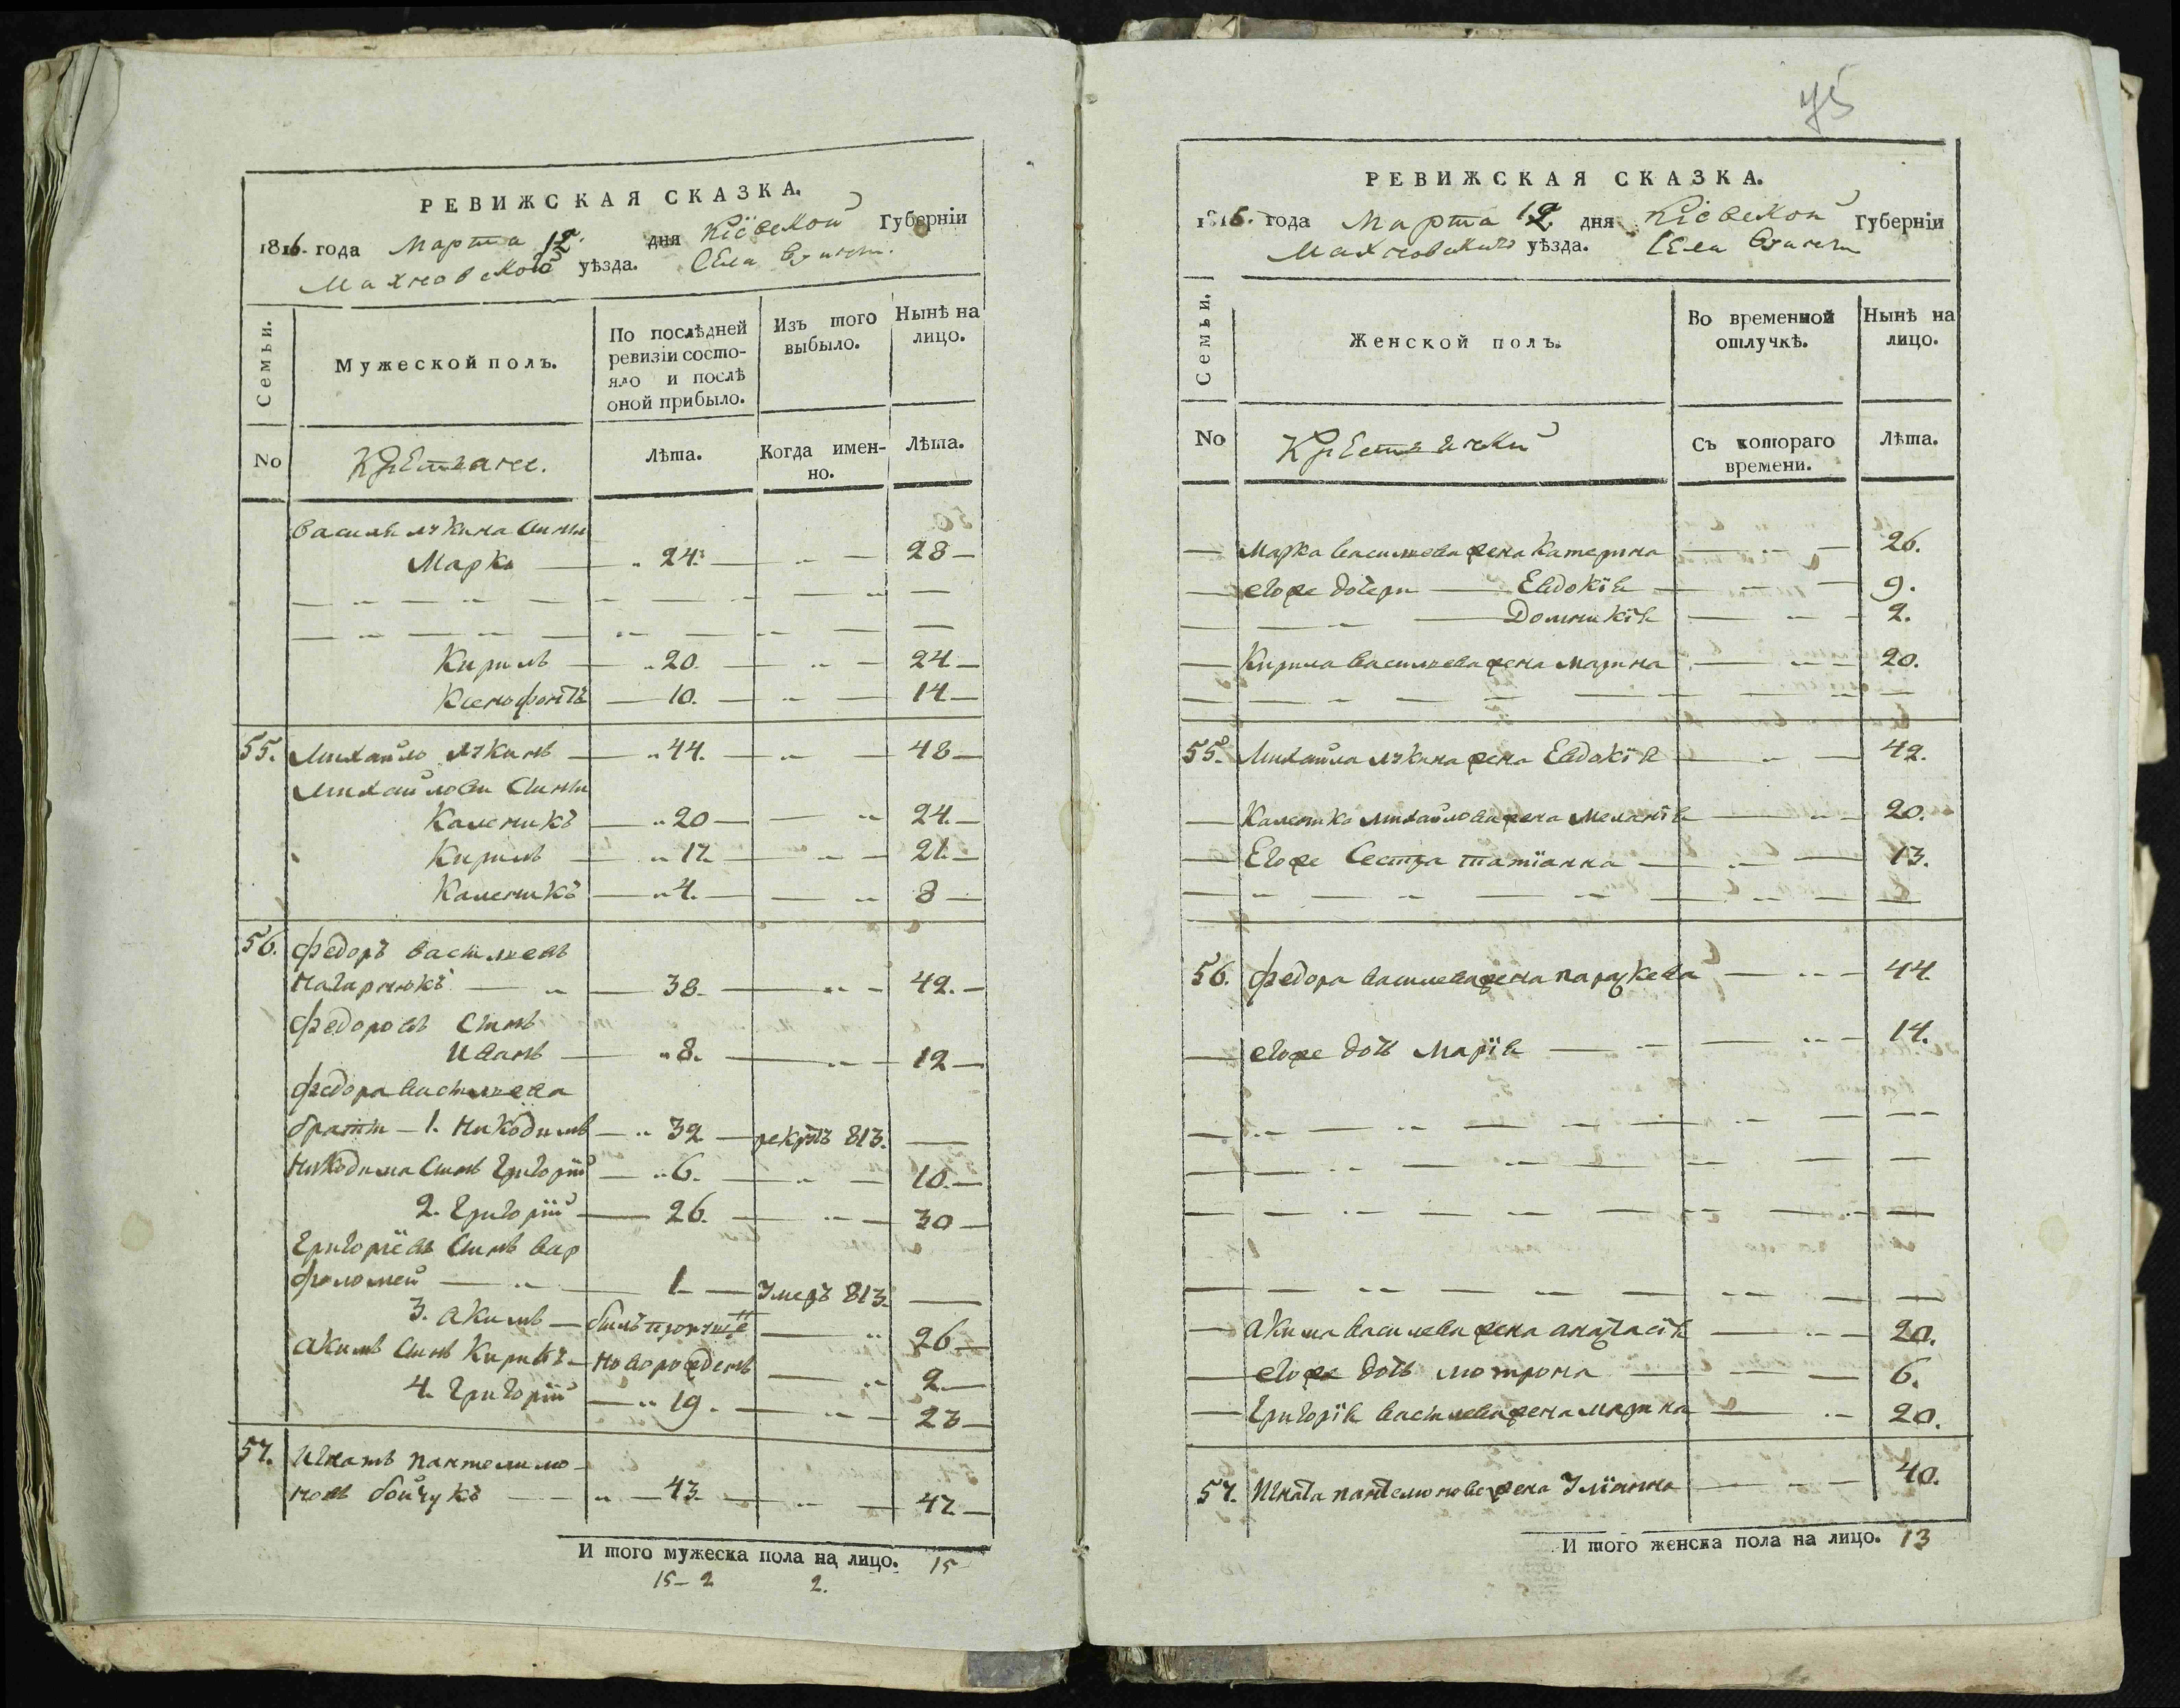 РЕВИЖСКАЯ СКАЗКА.
1816. года Марта 12. дня Кіевской Губерніи
Махновского уѣзда. Села
Семьи.
Мужеской полъ.
По послѣдней ревизіи состояло и послѣ оной прибыло.
Изъ того выбыло.
Нынѣ на лицо.
No
Крестяне.
Лѣта.
Когда именно.
Лѣта.
Василя Лукина сини
Марко — 24. — 28 —
Кирилъ — 20. — 24 —
Ксенофонтъ — 10. — 14 —
55. Михайло Лукинъ — 44. — 48 —
Михайлови сини
Каленикъ — 20 — 24. —
Кирилъ — 17. — 21. —
Каленикъ — 4. — 8 —
56. Федоръ Василиевъ
— 38. — 42. —
Федоровъ синъ
Иванъ — 8. — 12 —
Федора Василиева
брати — 1. Никодимъ — 32 — рекрутъ 813. —
Никодима синъ Григорій — 6. — 10. —
2. Григорій — 26. — 30 —
Григоріевъ синъ Вар
фоломей — 1 — Умеръ 813. —
3. Акимъ — билъ — 26 —
Акимъ синъ — новорожденъ — 2. —
4. Григорій — 19. — 23 —
57. Игнатъ Пантелимо
новъ Бойчукъ — 43. — 47 —
И того мужеска пола на лицо. 15
15 — 2 2.
75
РЕВИЖСКАЯ СКАЗКА.
1816. года Марта 12. дня Кіевской Губерніи
Махновского уѣзда. Села
Семьи.
Женской полъ.
Во временной отлучкѣ.
Нынѣ на лицо.
No
Крестянки
Съ котораго времени.
Лѣта.
— Марка Василиева жена Катерина — 26.
— егоже дочери — Евдокія — 9.
— Домникія — 2.
— Кирила Василиева жена Марина — 20.
55. Михайла Лукина жена Евдокія — 42.
— Каленика Михайлова жена Меланія — 20.
— Егоже сестра Татіанна — 13.
56. Федора Василева жена Параскева — 44.
— егоже дочь Марія — 14.
— Акима Василева жена Анастасія — 20.
— егоже дочь Мотрона — 6.
— Григорія Василева жена Марина — 20.
57. Игната Пантелимонова жена Уліянна — 40.
И того женска пола на лицо. 13